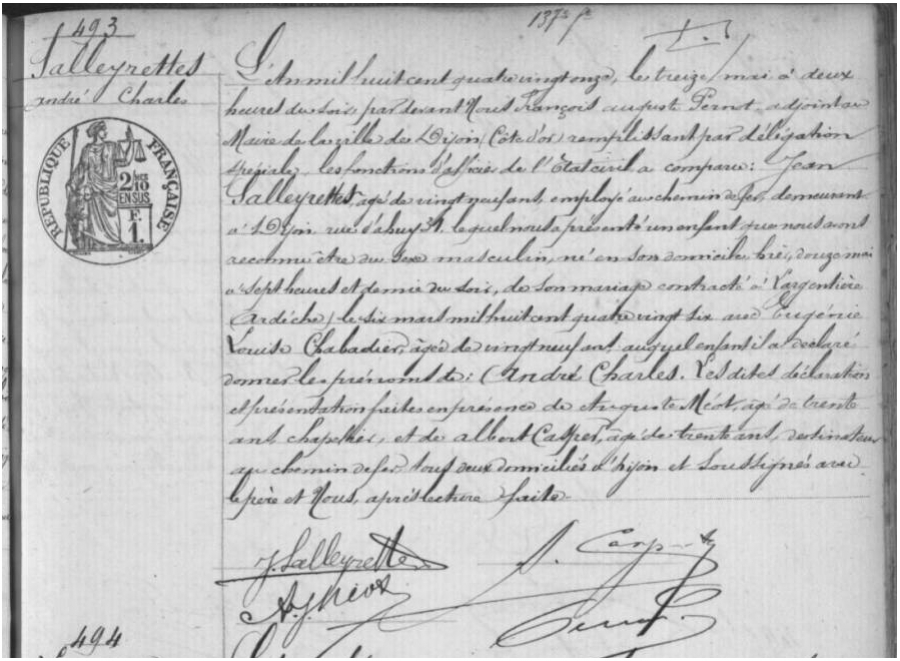 493
Salleyrettes
andré Charles
RÉPUBLIQUE FRANÇAISE
2/10
EN SUS
F.
1
L'An mil huit cent quatre vingt onze, le treize mai à deux
heures du soir, par devant Nous François auguste Pernot adjoint au
Maire de la ville de Dijon (Côte d'or) remplissant par délégation
spéciale, les fonctions d'officier de l'Etat civil a comparu: Jean
Salleyrettes, âgé de vingt neuf ans, employé au chemin de fer, demeurant
à Dijon rue d'ahuy, lequel nous a présenté un enfant que nous avons
reconnu être du sexe masculin, né en son domicile hier, douze mai
à sept heures et demie du soir, de son mariage contracté à Largentière
(Ardèche) le six mars mil huit cent quatre vingt six avec Eugénie
Louise Chabadier, âgée de vingt neuf ans, auquel enfant il a déclaré
donner les prénoms de: André Charles. Les dites déclaration
et présentation faites en présence de Auguste Méot, âgé de trente
ans chapelier, et de albert, âgé de trente ans, dessinateur
au chemin de fer, tous deux domiciliés à Dijon et soussignés avec
le père et Nous, après lecture faite.
J Salleyrettes
A. J. Méot
494